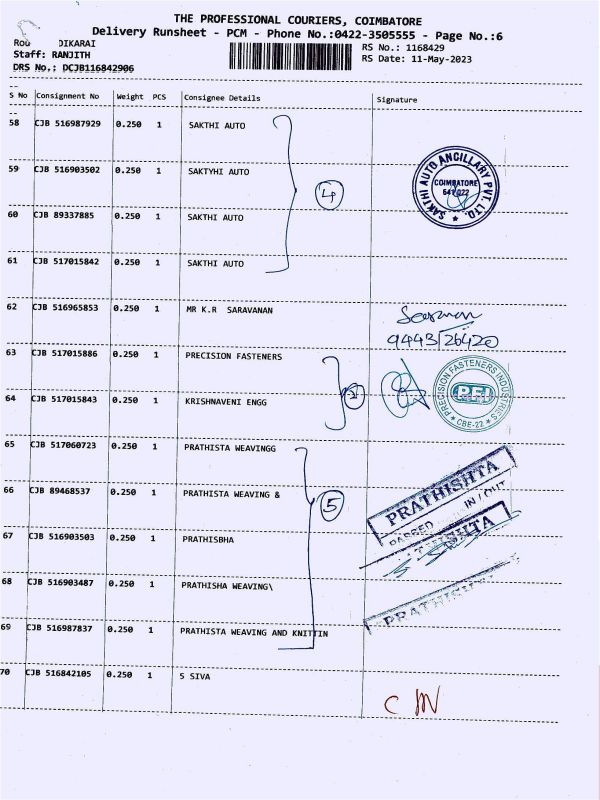 THE PROFESSIONAL COURIERS, COIMBATORE
Delivery Runsheet - PCM - Phone No.:0422-3505555 - Page No.:6
DIKARAI
RS No.: 1168429
Staff: RANJITH
RS Date: 11-May-2023
DRS No.: DCJB116842906
S No Consignment No Weight PCS Consignee Details Signature
58 CJB 516987929 0.250 1 SAKTHI AUTO
59 CJB 516903502 0.250 1 SAKTYHI AUTO
SAKTHI AUTO ANCILLARY PVT. LTD.
COIMBATORE
641 022
4
60 CJB 89337885 0.250 1 SAKTHI AUTO
61 CJB 517015842 0.250 1 SAKTHI AUTO
62 CJB 516965853 0.250 1 MR K.R SARAVANAN
9443126420
63 CJB 517015886 0.250 1 PRECISION FASTENERS
PRECISION FASTENERS INDUSTRIES
PFI
CBE-22
2
64 CJB 517015843 0.250 1 KRISHNAVENI ENGG
65 CJB 517060723 0.250 1 PRATHISTA WEAVINGG
66 CJB 89468537 0.250 1 PRATHISTA WEAVING &
5
PRATHISHTA
PASSED IN / OUT
67 CJB 516903503 0.250 1 PRATHISBHA
68 CJB 516903487 0.250 1 PRATHISHA WEAVING\
69 CJB 516987837 0.250 1 PRATHISTA WEAVING AND KNITTIN
70 CJB 516842105 0.250 1 S SIVA